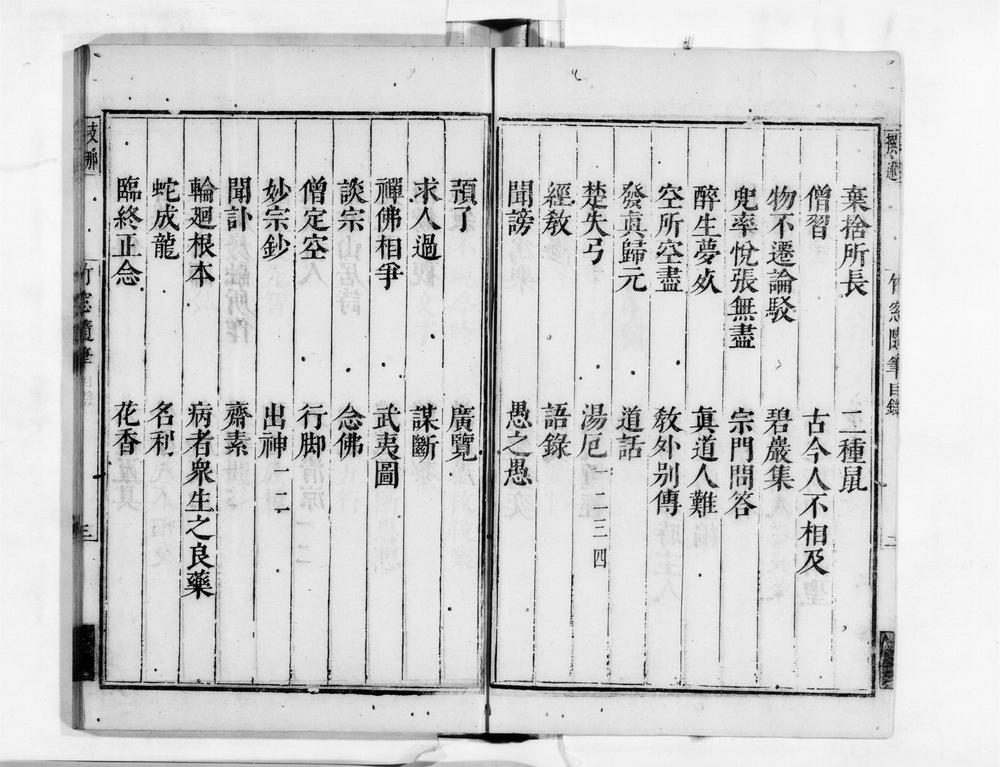 棄捨所長　二種鼠
僧習　古今人不相及
物不遷論駁　碧巖集
兜率悅張無盡　宗門問答
醉生夢𣦸　眞道人難
空所空盡　敎外別傳
發眞歸元　道話
楚失弓　湯厄一二三四
經敎　語錄
聞謗　愚之愚
竹窓隨筆目錄　二
預了　廣覽
求人過　謀斷
禪佛相爭　武夷圖
談宗　念佛
僧定空　行脚
妙宗鈔　出神一二
聞訃　齋素
輪廻根本　病者衆生之良藥
蛇成龍　名利
臨終正念　花香
竹窓隨筆目錄　三